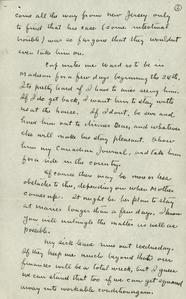 come all the way from New Jersey only
to find that his case (some intestinal
trouble) was so far gone that they wouldn't
even take him on.
writes me Ward is to be in
Madison for a few days beginning the 28th.
I'd hate to miss seeing him.
If I do get back, I want him to stay with
us at the house. If I don't, be sure and
have him out to dinner Dean, and whatever
else will make his stay pleasant. Show
him my Canadian Journal, and take him
for a ride in the country.
Of course there may be more or less
obstacles to this, depending on when Mother
comes up. It might be her plan to stay
at Maries longer than a few days. I know
you will untangle the matter as well as
possible.
My sick leave runs out Wednesday.
If they keep me much beyond that our
finances will be a total wreck, but I guess
we can stand that too if we can get squared
away into workable condition again.